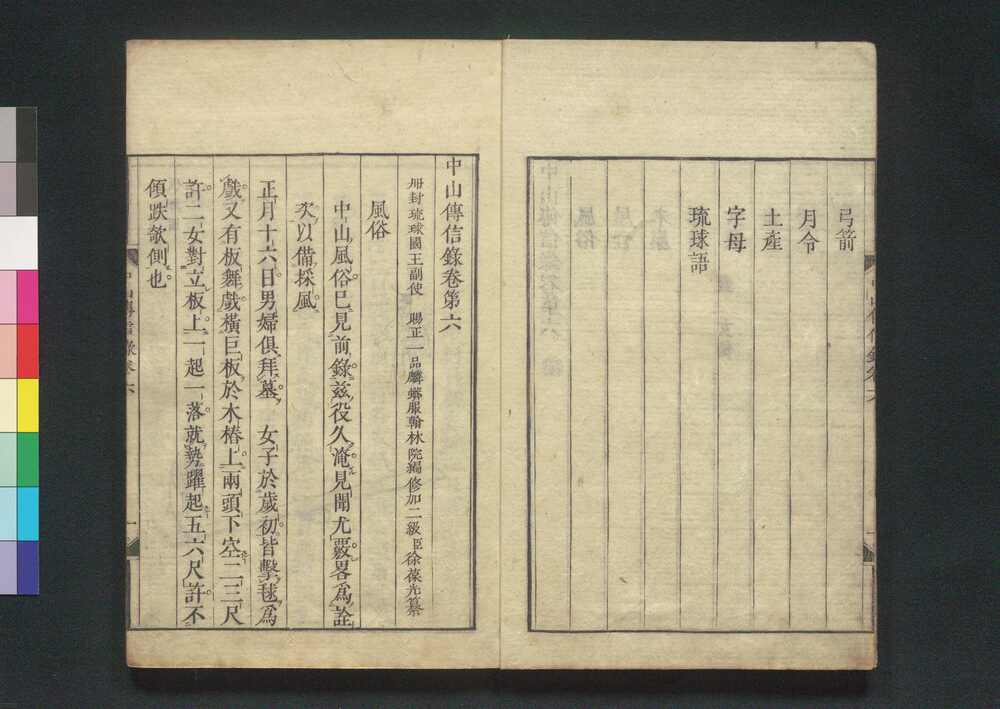 弓箭
月令
土產
字母
琉球語
中山傳信錄卷第六
冊封琉球國王副使 賜正一品麟蟒服翰林院編修加二級臣徐葆光纂
風俗
中山風俗已見前錄茲役久淹見聞尤覈畧爲詮
次以備採風
正月十六日男婦俱拜墓 女子於歲初皆擊毬爲
戲又有板舞戲橫巨板於木樁上兩頭下空二三尺
許二女對立板上一起一落就勢躍起五六尺許不
傾跌欹側也
中山傳信錄卷六
一